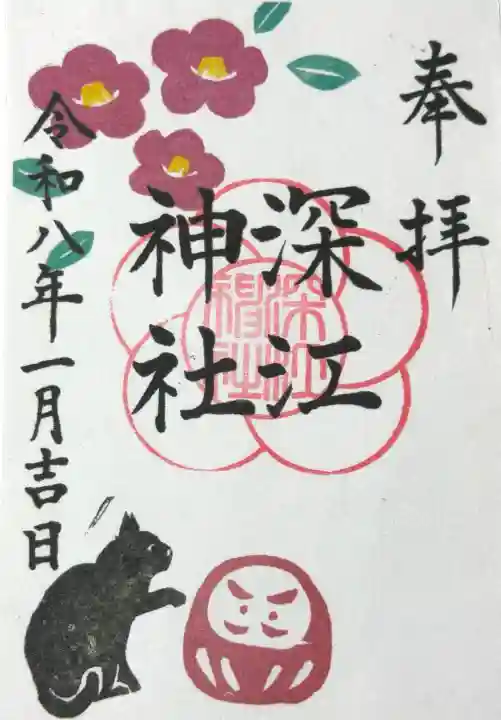 奉拝
深江
神社
深江
神社
令和八年一月吉日